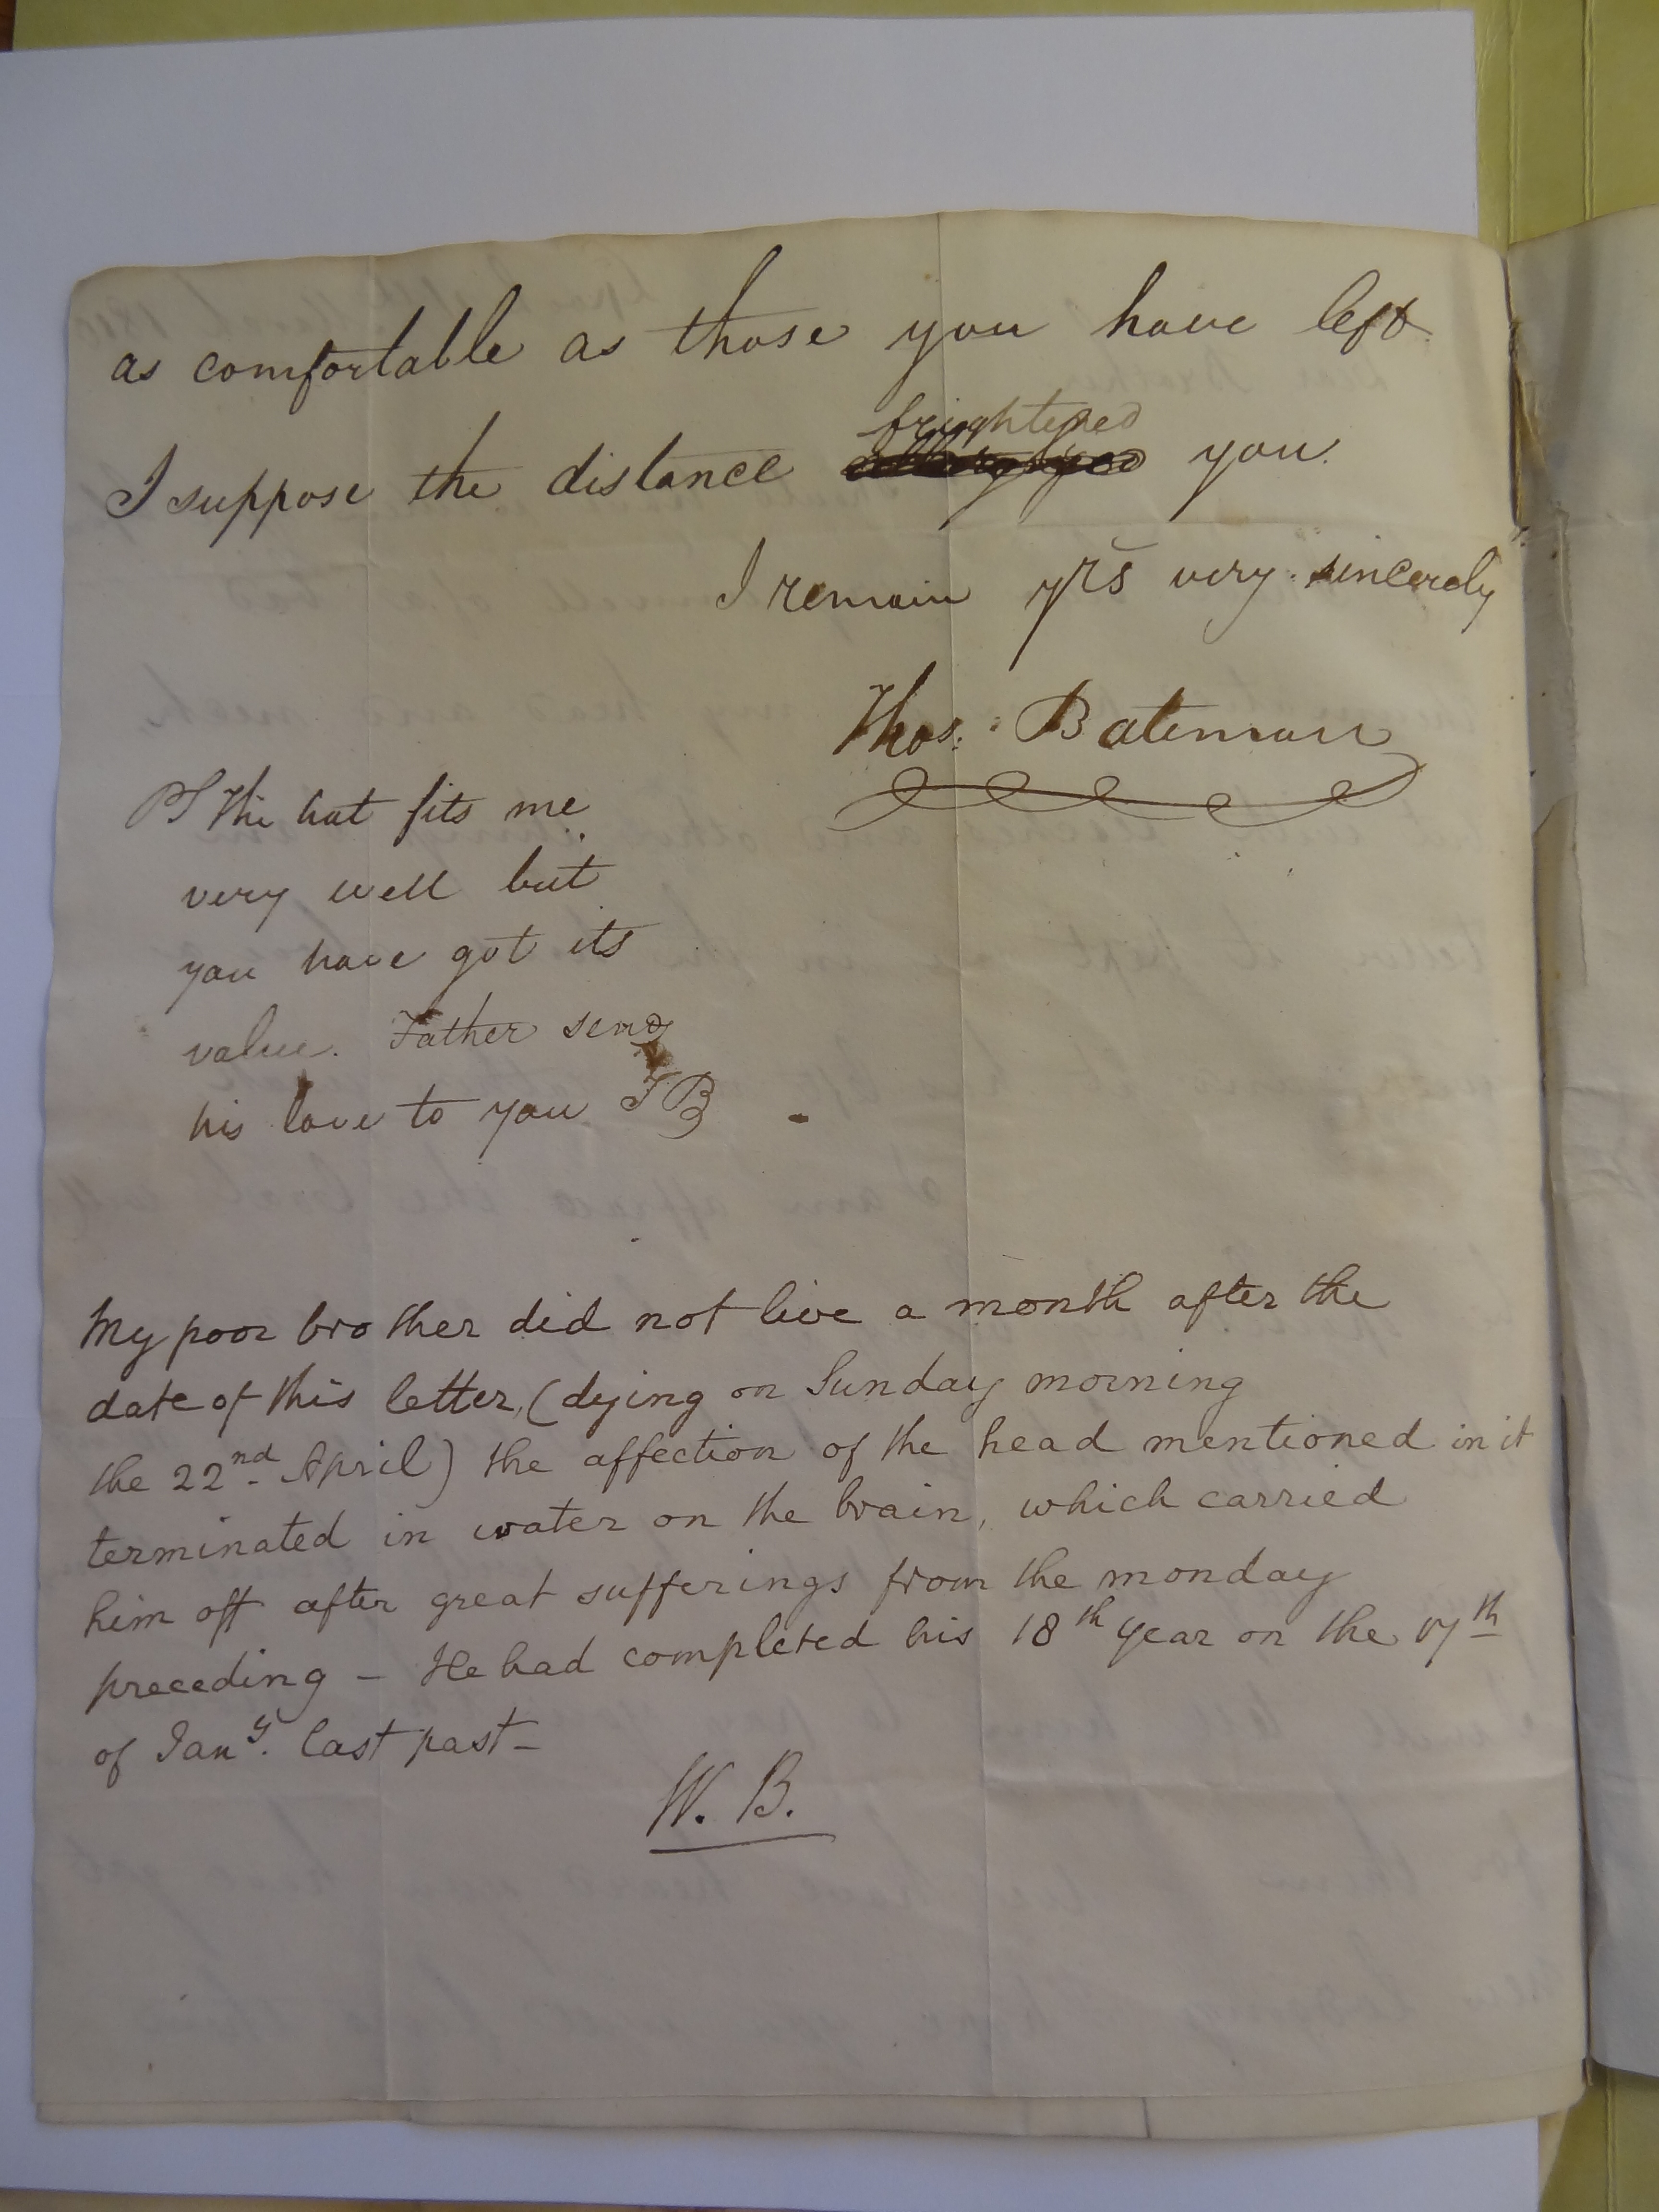 as comfortable as those you have left
I suppose the distance frightened you.
I remain yrs very sincerely
Thos: Bateman
PS The hat fits me
very well but
you have got its
value. Father send
his love to you TB
My poor brother did not live a month after the
date of this letter, (dying on Sunday morning
the 22nd April) the affection of the head mentioned in it
terminated in water on the brain, which carried
him off after great sufferings from the monday
preceding – He had completed his 18th year on the 17th
of Jany. last past –
W. B.